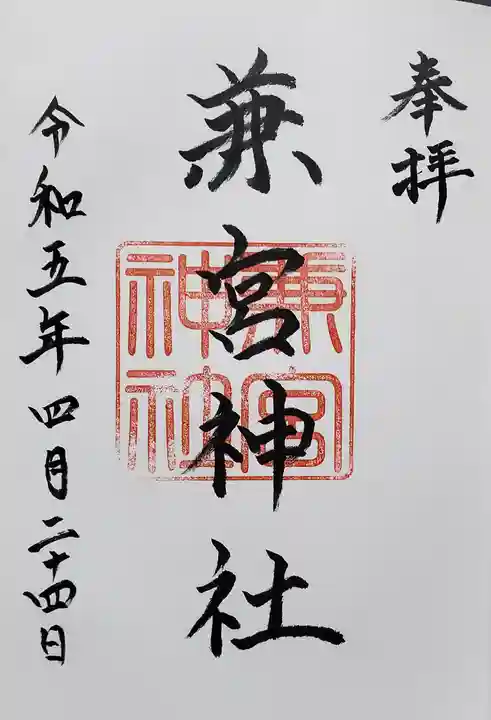 奉拝
兼宮神社
兼宮神社
令和五年四月二十四日